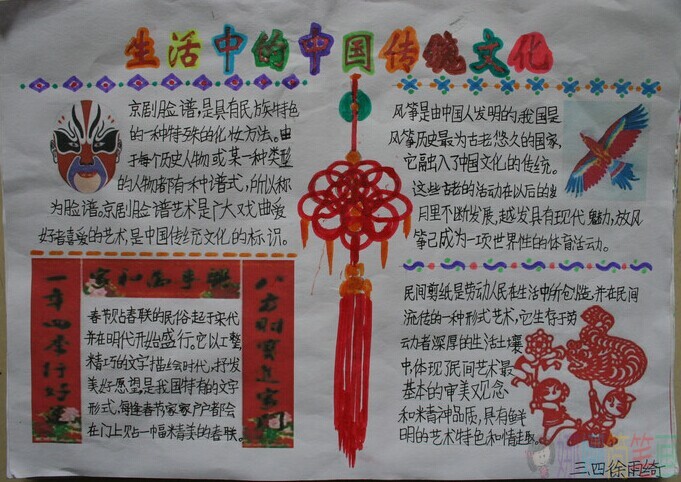 生活中的中国传统文化
京剧脸谱,是具有民族特色
的一种特殊的化妆方法。由
于每个历史人物或某一种类型
的人物都有一种谱式,所以称
为脸谱。京剧脸谱艺术是广大戏曲爱
好者喜爱的艺术,是中国传统文化的标识。
风筝是由中国人发明的,我国是
风筝历史最为古老悠久的国家,
它融入了中国文化的传统。
这些古老的活动在以后的岁
月里不断发展,越发具有现代魅力,放风
筝已成为一项世界性的体育活动。
家和万事兴
一年四季行好运
八方财宝进家门
春节贴春联的民俗起于宋代
并在明代开始盛行。它以工整、
精巧的文字描绘时代,抒发
美好愿望,是我国特有的文字
形式,每逢春节家家户户都会
在门上贴一幅精美的春联。
民间剪纸是劳动人民在生活中所创造,并在民间
流传的一种形式艺术,它生存于劳
动者深厚的生活土壤
中体现了民间艺术最
基本的审美观念
和精神品质,具有鲜
明的艺术特色和情趣。
三、四 徐雨绮